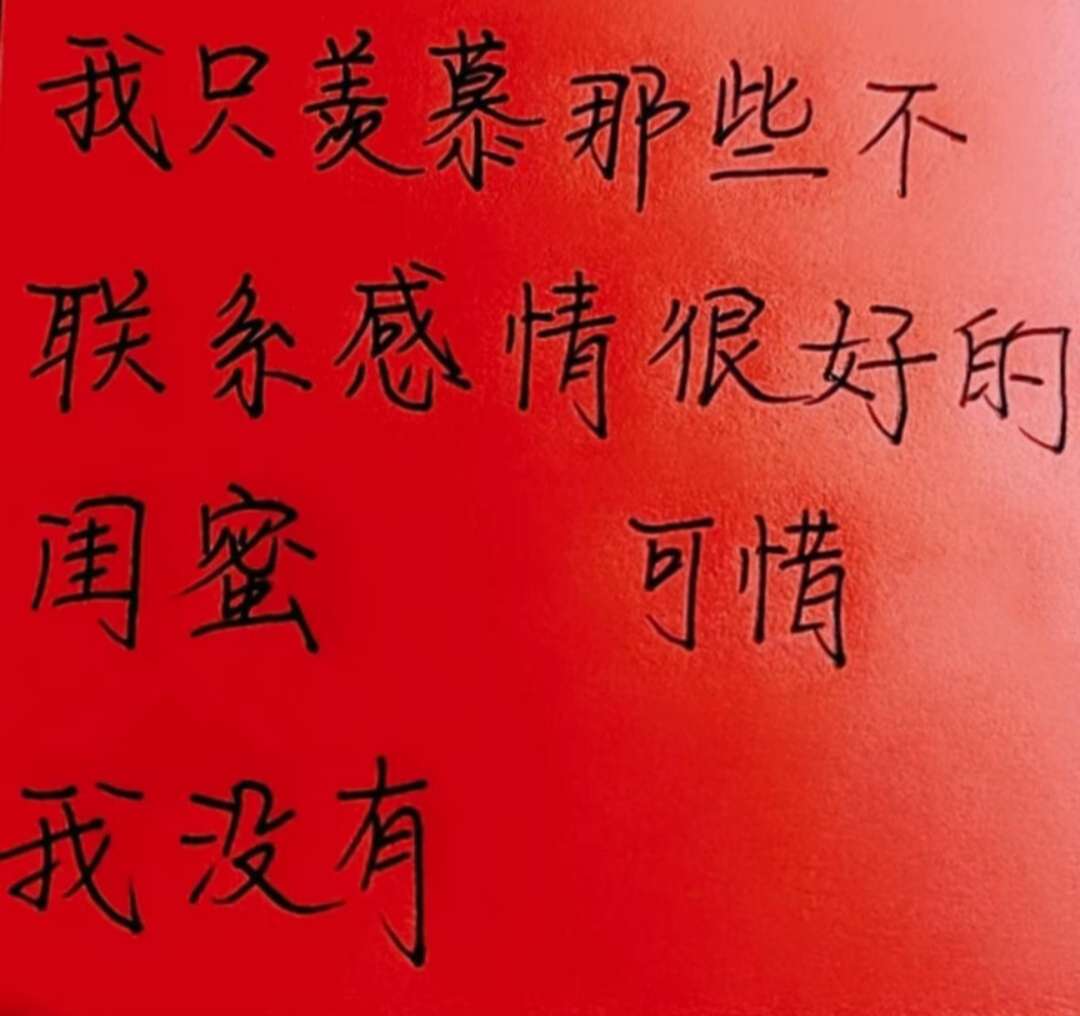 我只羡慕那些不
联系感情很好的
闺蜜 可惜
我没有